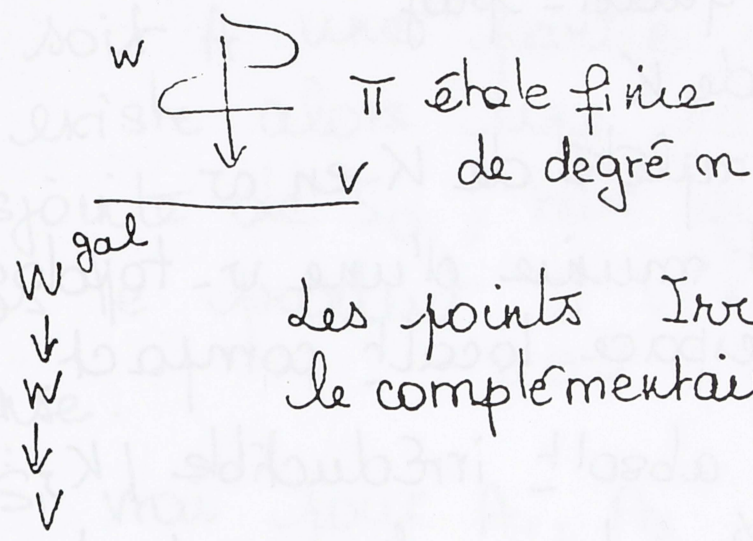 W
π étale finie
de degré n
V
W gal
↓
Les points Irr
W
le complémentai
↓
V